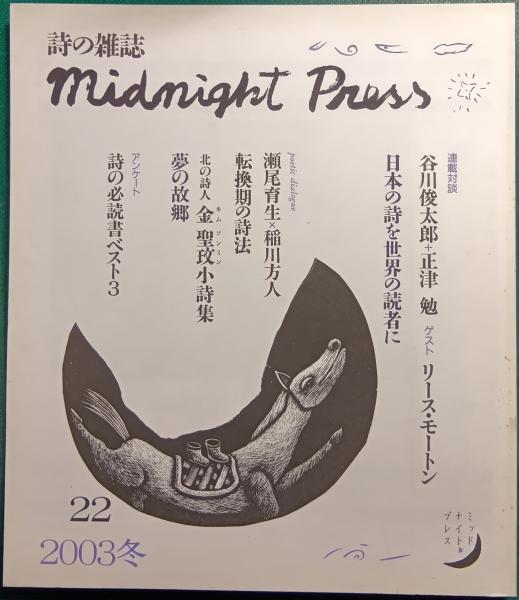 詩の雑誌
midnight Press
連載対談
谷川俊太郎+正津 勉 ゲスト リース・モートン
日本の詩を世界の読者に
poetic dialogue
瀬尾育生×稲川方人
転換期の詩法
北の詩人 金聖玟小詩集
キム ソンミン
夢の故郷
アンケート
詩の必読書ベスト3
22
2003冬
ミッド
ナイト・
プレス